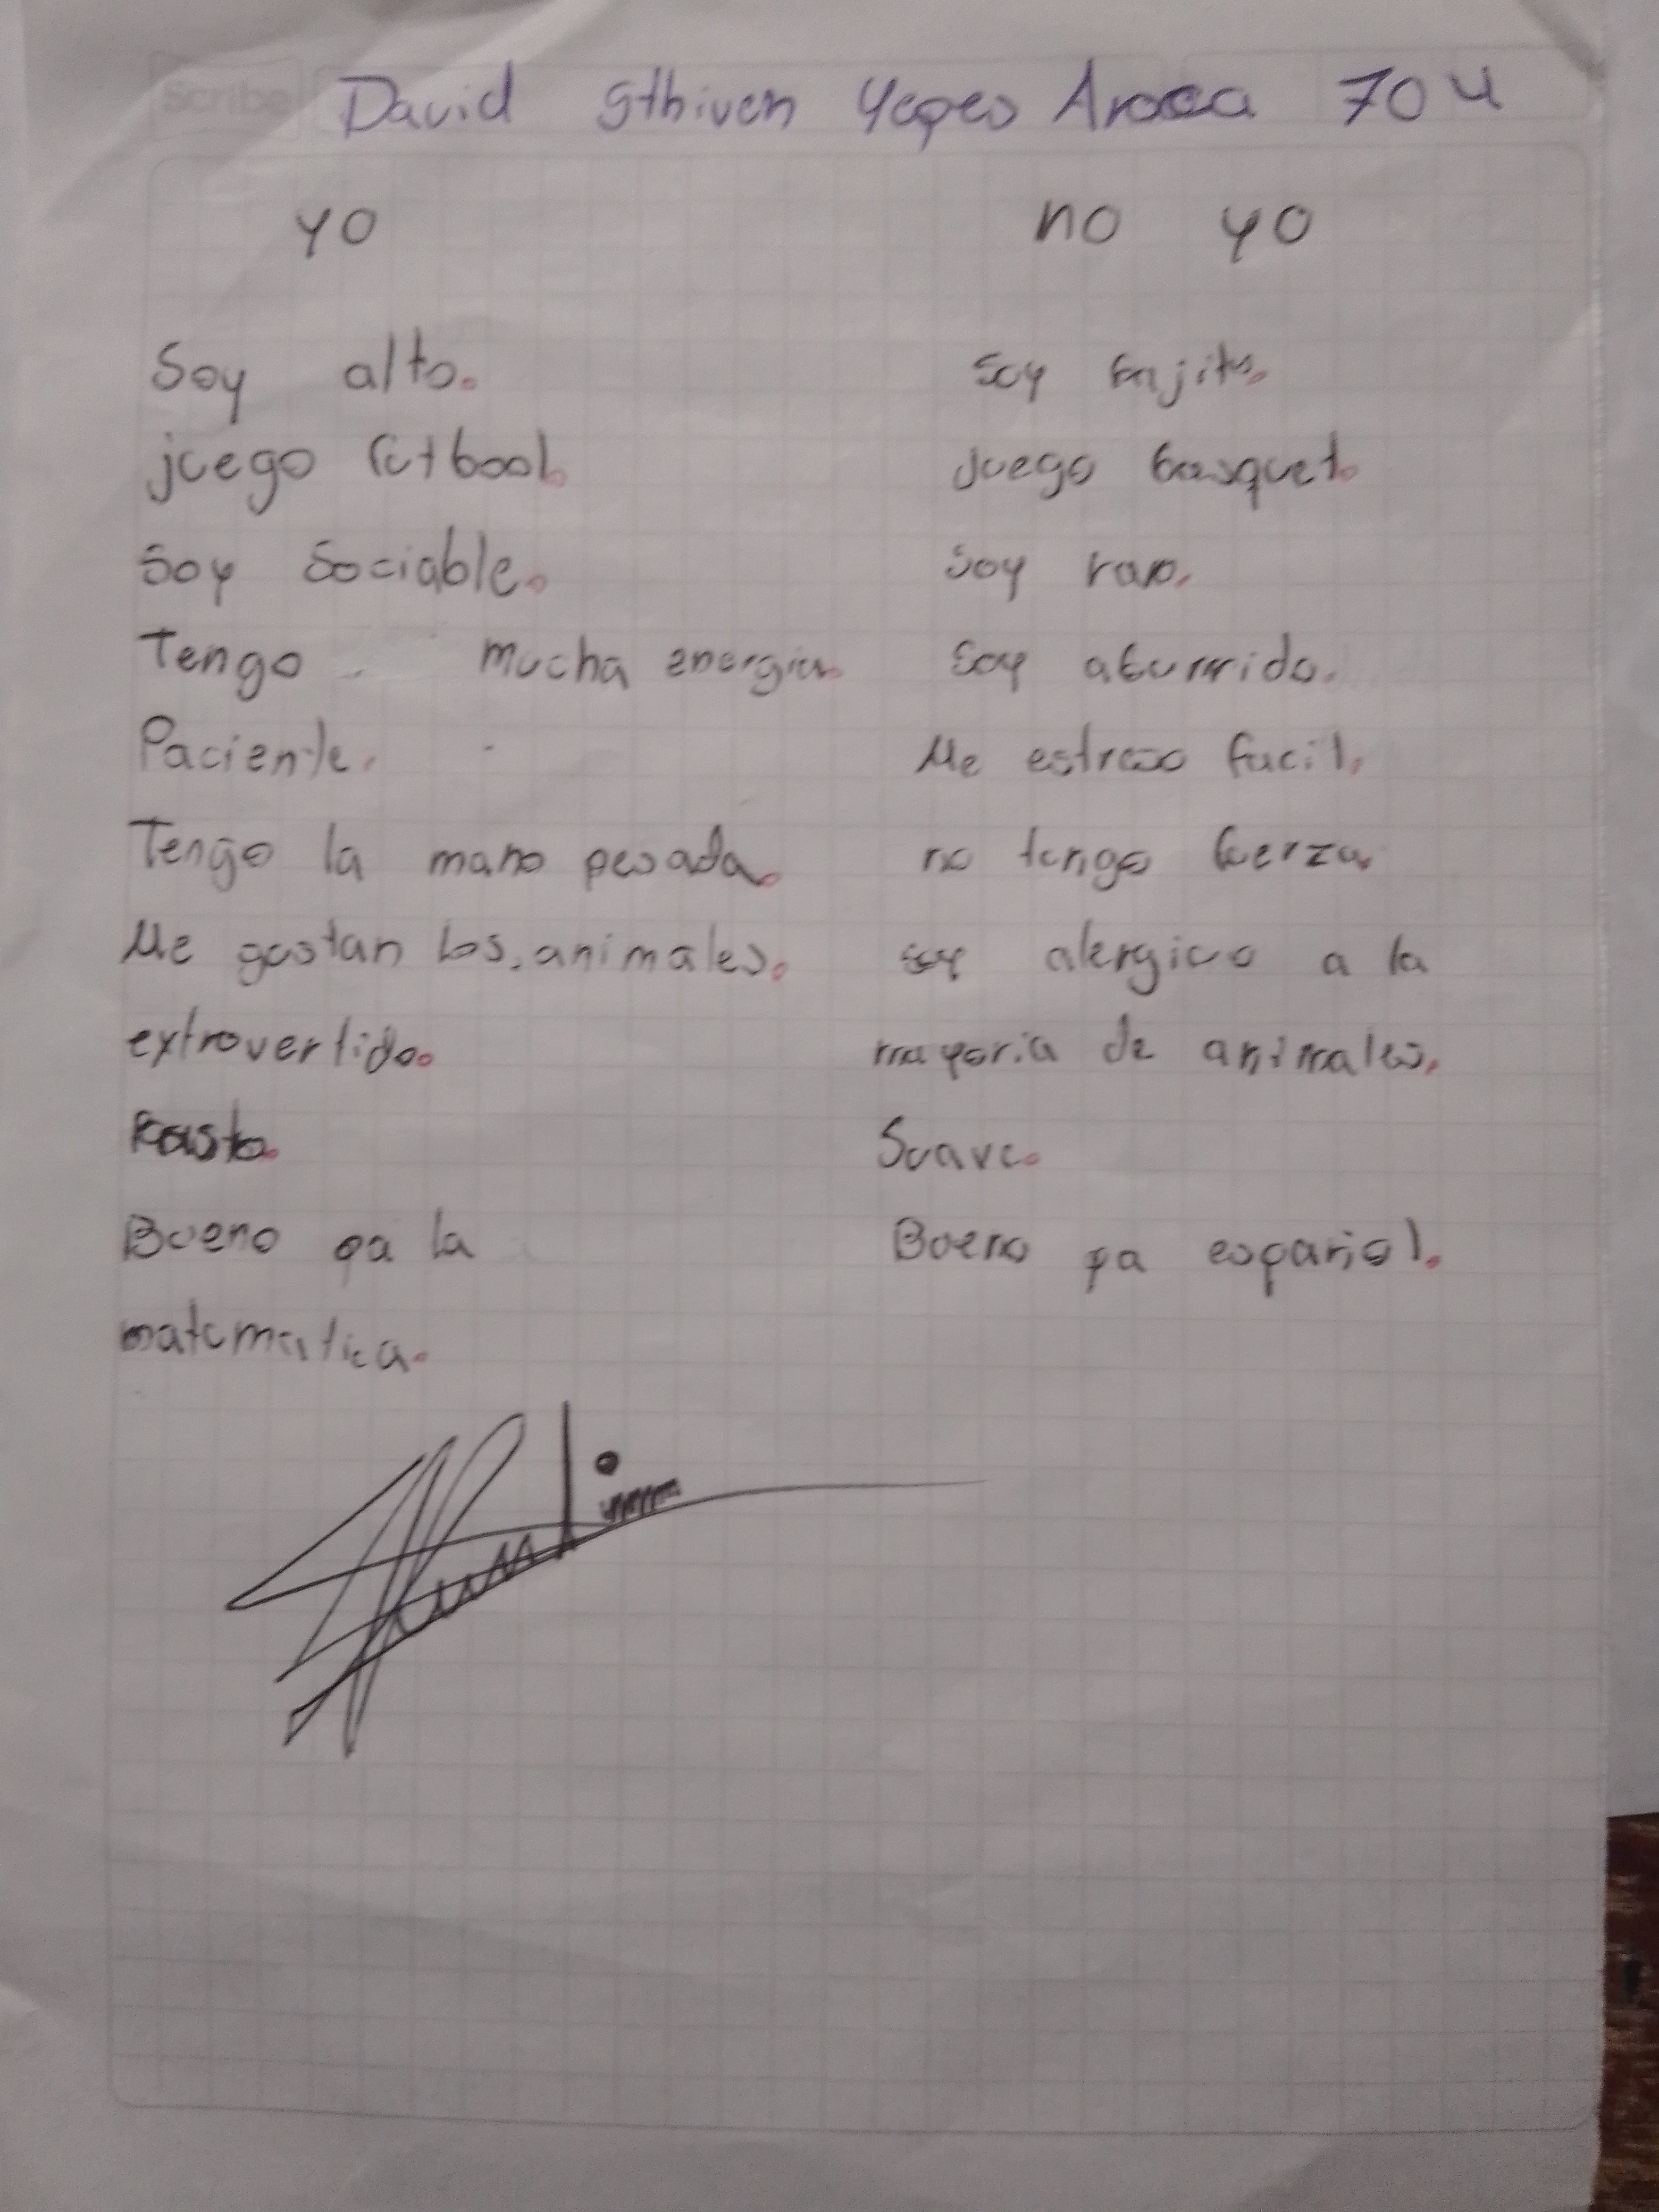 Scribe David Sthiven Yepes Aroca 704
yo
no yo
Soy alto.
juego futbool.
Soy Sociable.
Tengo mucha energia.
Paciente.
Tengo la mano pesada.
Me gustan los animales.
extrovertido.
Bueno pa la
matematica.
Soy bajito.
Juego basquet.
Soy raro.
Soy aburrido.
Me estreso facil.
no tengo fuerza.
soy alergico a la
mayoria de animales.
Suave.
Bueno pa español.